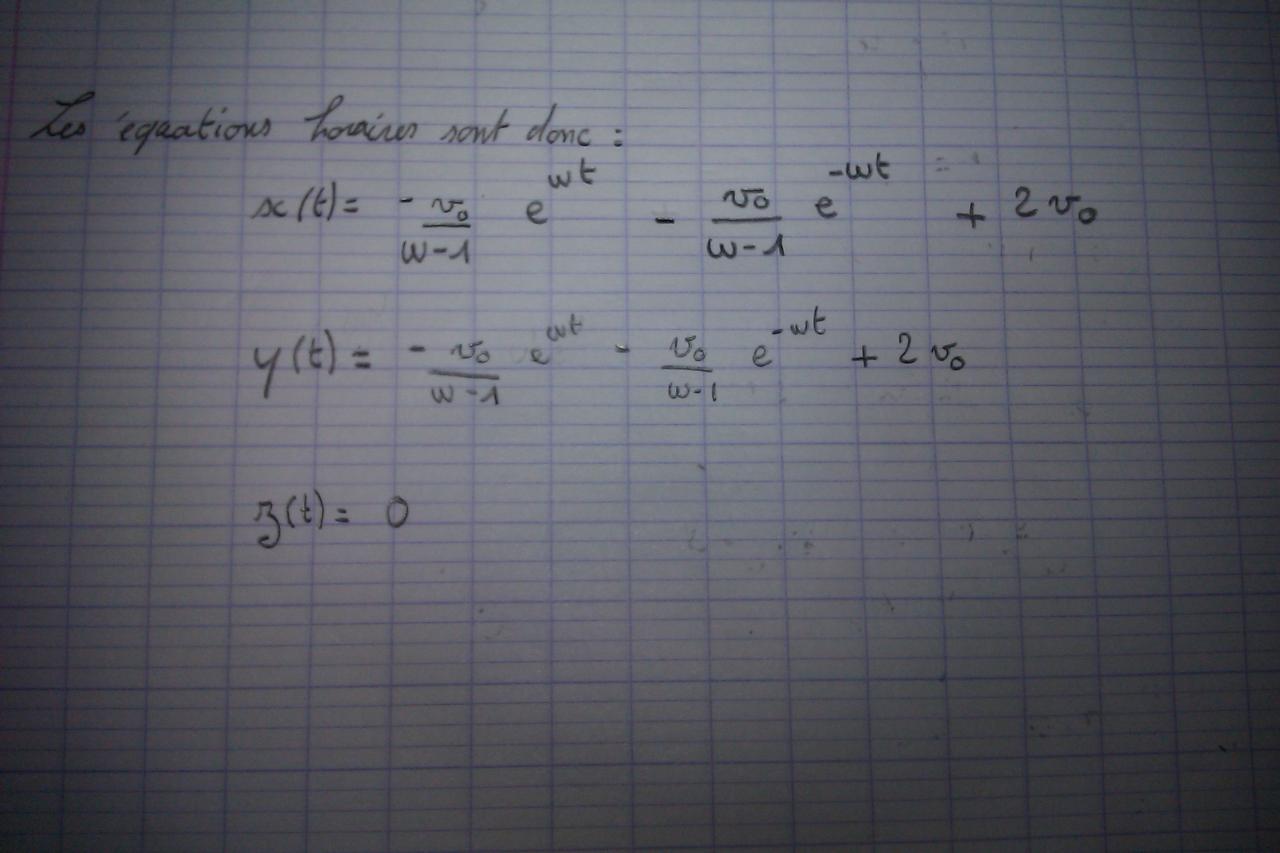 Les équations horaires sont donc :
x(t) = -v₀/(ω-1) e^(ωt) - v₀/(ω-1) e^(-ωt) + 2v₀
y(t) = -v₀/(ω-1) e^(ωt) - v₀/(ω-1) e^(-ωt) + 2v₀
z(t) = 0